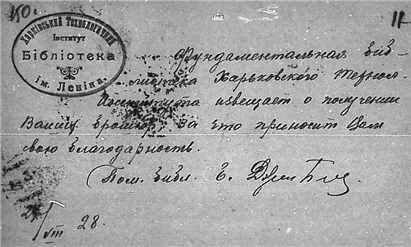 150. 11
Харківський Технологічний
Інститут
Бібліотека
ім. Леніна
Фундаментальная биб-
лиотека Харьковского Технол.
Института извещает о получении
Ваших брошюр, за что приносит Вам
свою благодарность.
Пом. библ. Е.
VIII 28.